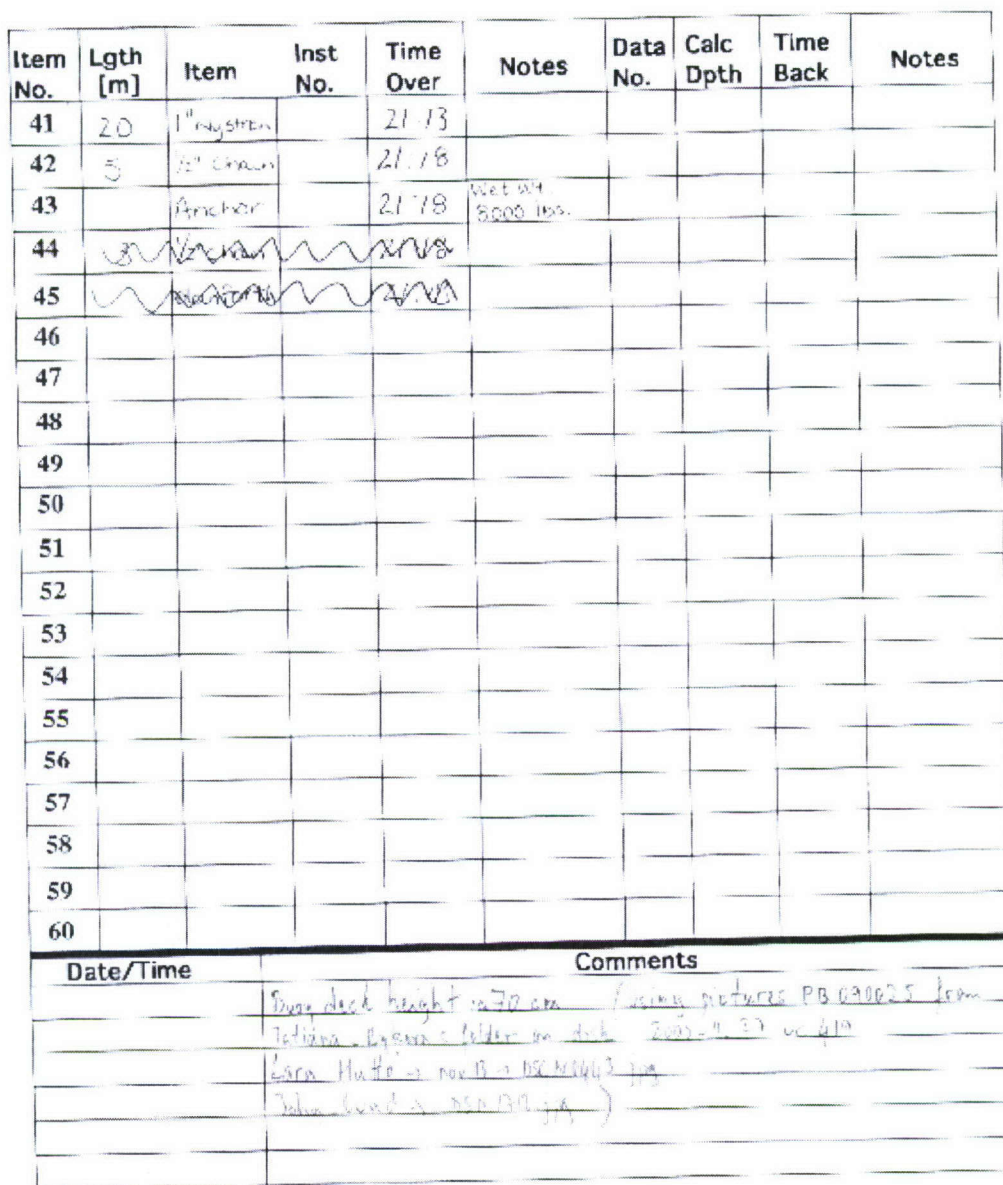 Item No. Lgth [m] Item Inst No. Time Over Notes Data No. Calc Dpth Time Back Notes
41 20 1" nystron 21:13
42 5 ½" Chain 21:18
43 Anchor 21:18 Wet Wt. 8000 lbs.
44 3 ½ chain
45
46
47
48
49
50
51
52
53
54
55
56
57
58
59
60
Date/Time Comments
Buoy deck height 70 cm (using pictures PB090025 from
Tatiana folder on disk
Lara Hutto → nov 13 → jpg
John